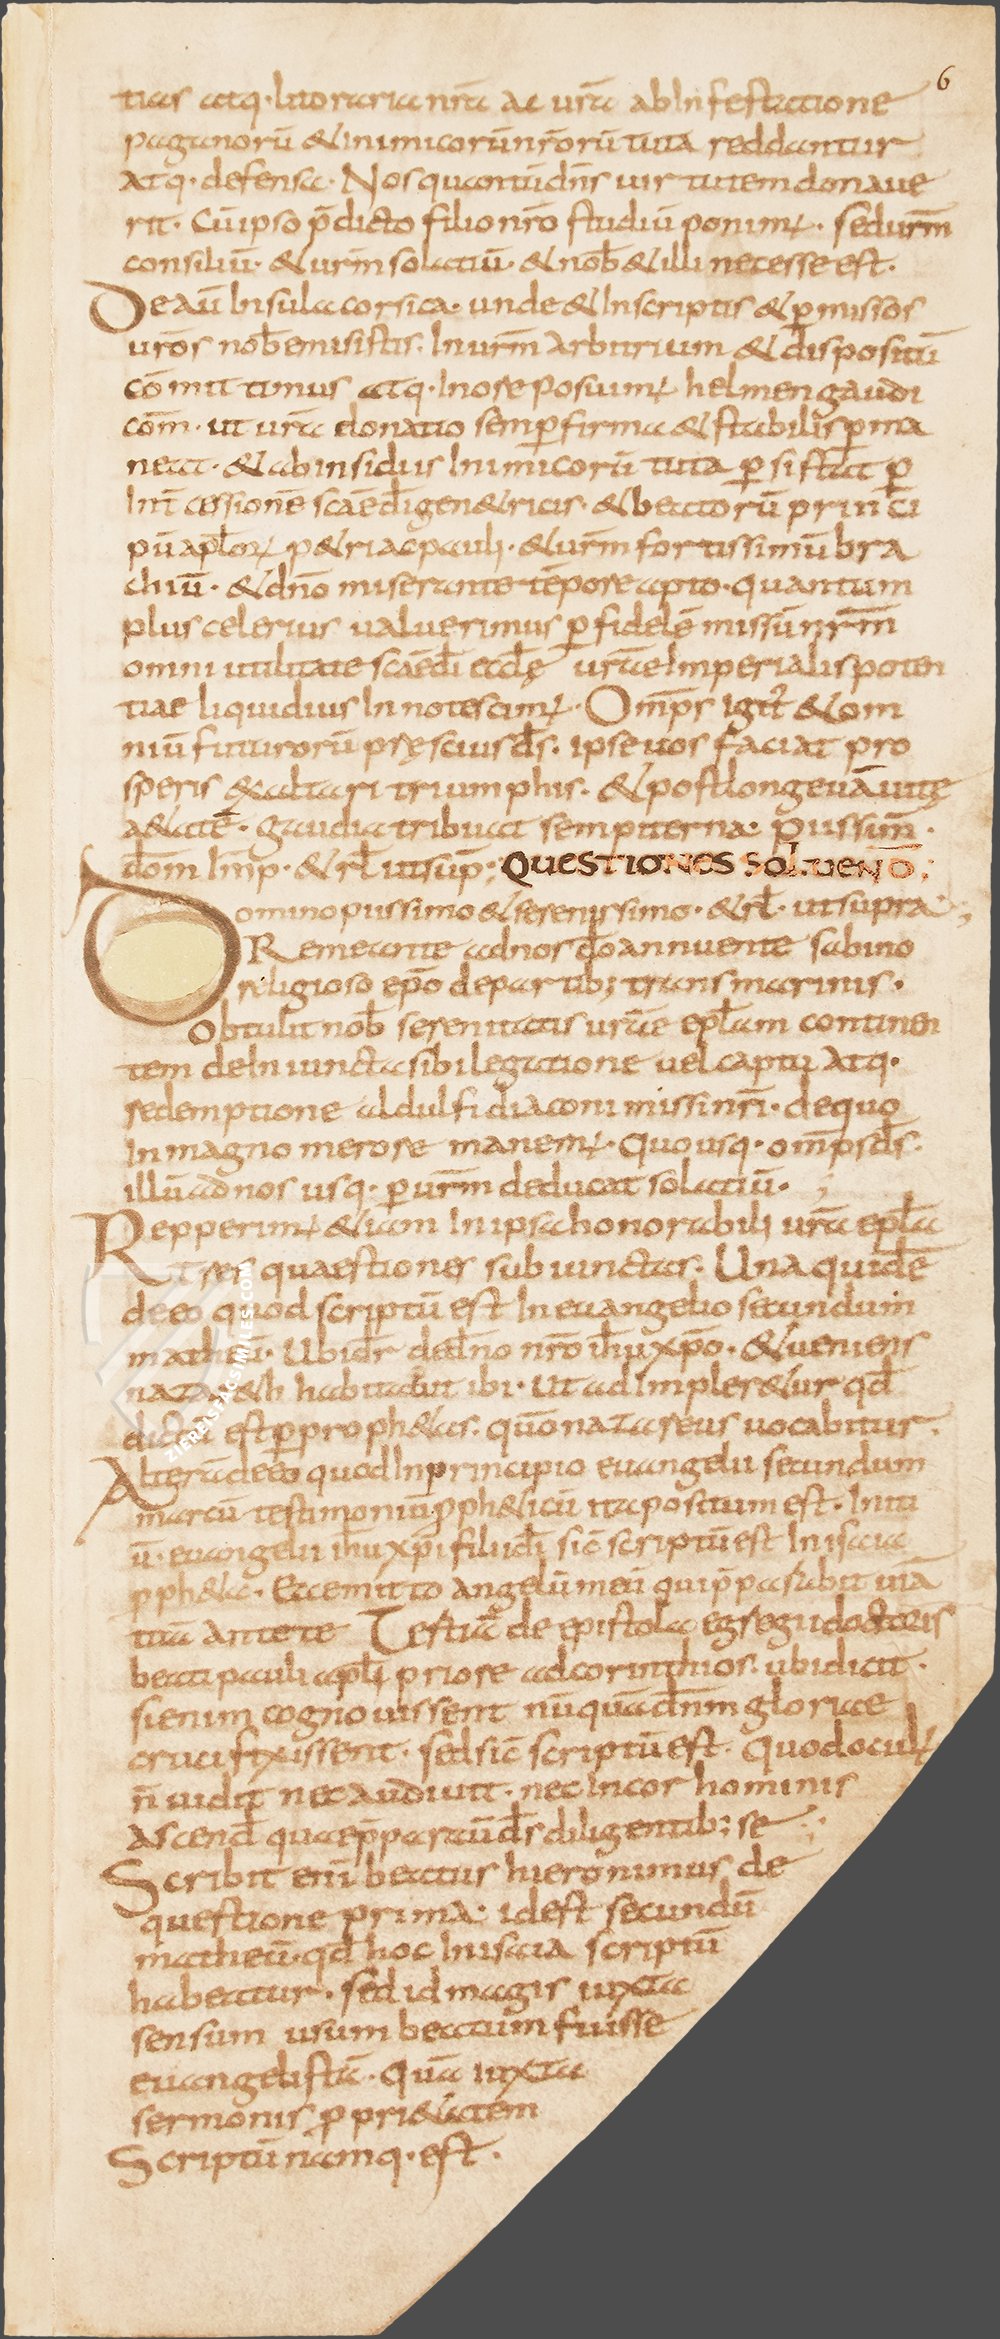 6
tias atq· litoraria nr̄a ac ur̄a ab Infestatione
paganorū & inimicorū nr̄orū tuta reddantur
atq· defensa· Nos quantū dn̄s uirtutem donaue
rit· Cū ipso p̄dicto filio nr̄o studiū ponim;· sed ur̄m
consiliū· & ur̄m solatiū· & nob̄ & illi necesse est·
De aū Insula corsica· unde & Inscriptis & p̱ missos
ur̄os nob̄ emisistis· In ur̄m arbitrium & dispositū
cōmittimus atq· In ore posuim; helmengaudi
com̄· ut ur̄a donatio semp̱ firma & stabilis p̱ma
neat· & ab insidiis Inimicorū tuta p̱sistat p̱
Int̄cessionē scāe dī genetricis· & beatorū princi
pū apl̄or; p&ri ac pauli· & ur̄m fortissimū bra
chiū· & dn̄o miserante tēpore apto· quantum
plus celerius ualuerimus p̱ fidelē missū nr̄m
omni utilitate scāe dī eccl̄ę ur̄ae Imperialis poten
tiae liquidius Innotescim;· Om̄ps igit̄ & om
niū futurorū pręscius ds̄· ipse uos faciat pro
speris exaltari triumphis· & post longeuā uitę
a&atē· gaudia tribuat sempiterna· Piissim̄·
dom̄ Imp̄· & rl̄ ut sup̄;
QUESTIONES SOLUENDO;
Domino piissimo & serenissimo· & rl̄· ut supra;
Remeante ad nos dō annuente sabino
religioso ep̄o de partib; transmarinis·
Obtulit nob̄ serenitatis ur̄ae epl̄am continen
tem de Iniuncta sibi legatione uel captu atq·
redemptione aldulfi diaconi missi nr̄i· de quo
In magno merore manem;· Quousq· om̄ps ds̄·
illū ad nos usq· p̱ ur̄m deducat solatiū·;
Repperim; &iam In ipsa honorabili ur̄a epl̄a
Tres quaestiones subiunctas· Una quidē
de eo quod scriptū est In euangelio secundum
matheū· Ubi dr̄ de dn̄o nr̄o ih̄u xp̄o· & ueniens
habitauit ibi· Ut adImpler&ur qd̄
dictū est p̱ proph&as· qūo nazareus uocabitur·
Alterā de eo quod In principio euangelii secundum
marcū testimoniū pph&icū ita positum est· Initi
ū· euangelii ih̄u xp̄i filii dī sic̄ scriptū est In isaia
pph&a· Ecce mitto angelū meū qui p̄parabit uiā
tuā ante te Tertiā de epistola egregii doctoris
beati pauli apl̄i priore ad corinthios· ubi dicit·
si enim cognouissent nūquā dn̄m gloriae
crucifixissent· sed sic̄ scriptū est· Quod ocul;
n̄ uidit nec audiuit· nec In cor hominis
ascend̄ quae p̄parauī ds̄ diligentib; se·;
Scribit enī beatus hieronimus de
questione prima· id est secundū
matheū· qd̄ hoc In isaia scriptū
habeatur· sed id magis iuxta
sensum usum beatum fuisse
euangelistā· Quā iuxta
sermonis ppri&atem
Scriptū namq· est·
ZIEREIS FACSIMILES.COM